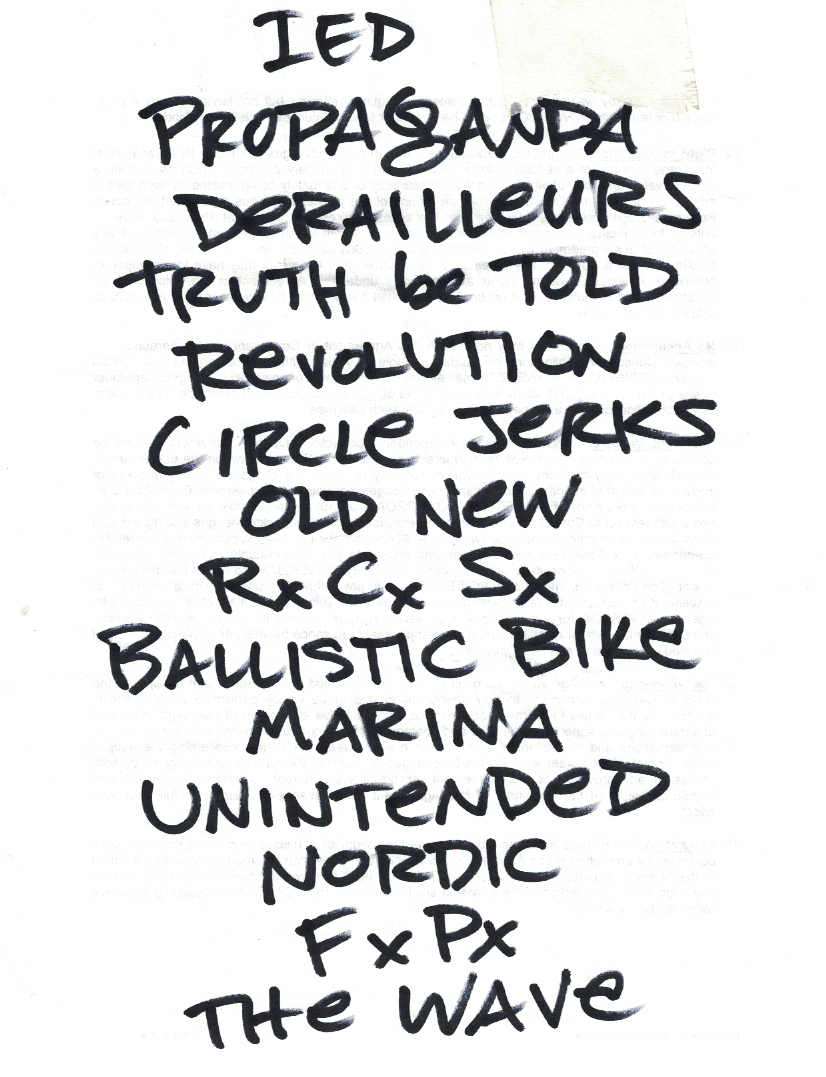 IED
PROPAGANDA
DeRAILLeuRS
TRUTH be TOLD
ReVOLUTION
CIRCLe JeRKS
OLD NeW
Rx Cx Sx
BALLISTIC BIKe
MARINA
UNINTeNDeD
NORDIC
FxPx
THe WAVe